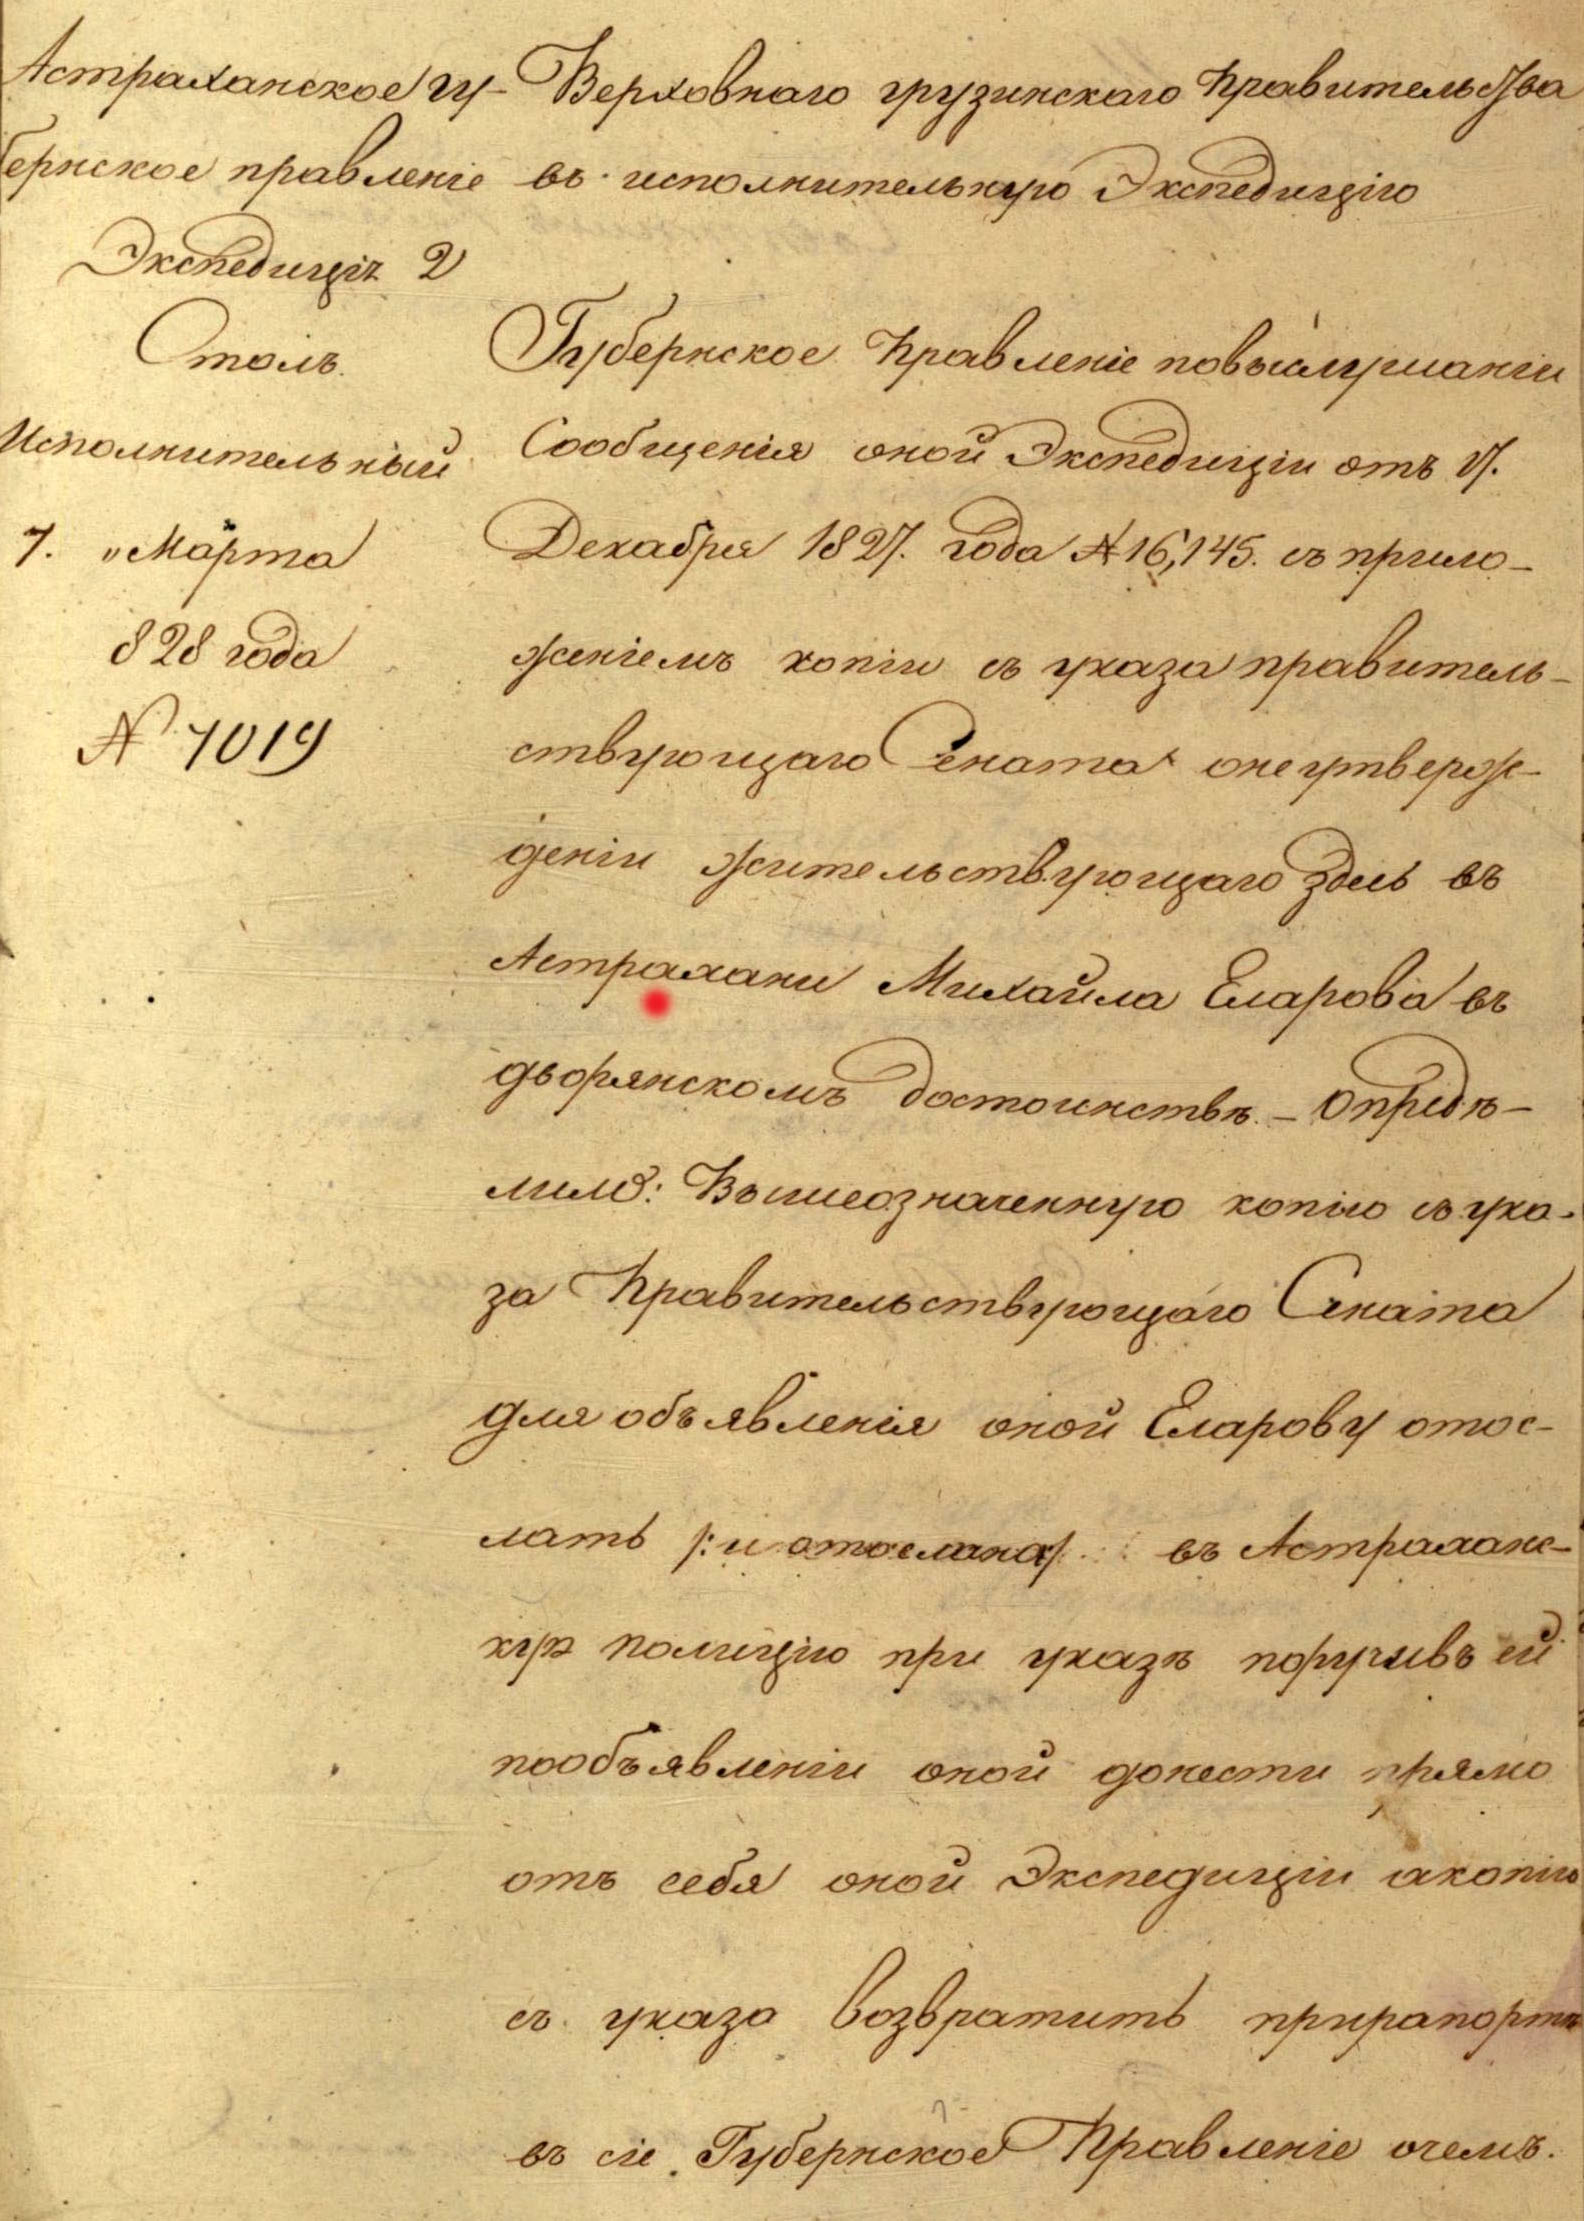 Астраханское гу-
бернское правленіе
Экспедиціи 2
Столъ
Исполнительный
7. „Марта
828 года
№ 7019
Верховнаго грузинскаго Правительства
въ исполнительную Экспедицію
Губернское Правленіе повыслушаніи
Сообщенія оной Экспедиціи отъ
Декабря 1827. года № 16,145. съ прило-
женіемъ копіи съ указа правитель-
ствующаго Сената онеутверж-
деніи жительствующаго здесь въ
Астрахани Михайла Еларова въ
дворянскомъ достоинствѣ – Опредѣ-
лило: Вышеозначенную копію съ ука-
за Правительствующаго Сената
для объявленія оной Еларову отос-
лать /: и отослана/: въ Астраханс-
кую полицію при указѣ поручивъ ей
пообъявленіи оной донести прямо
отъ себя оной Экспедиціи акопію
съ указа возвратить прирапортѣ
въ сіе Губернское Правленіе очемъ.